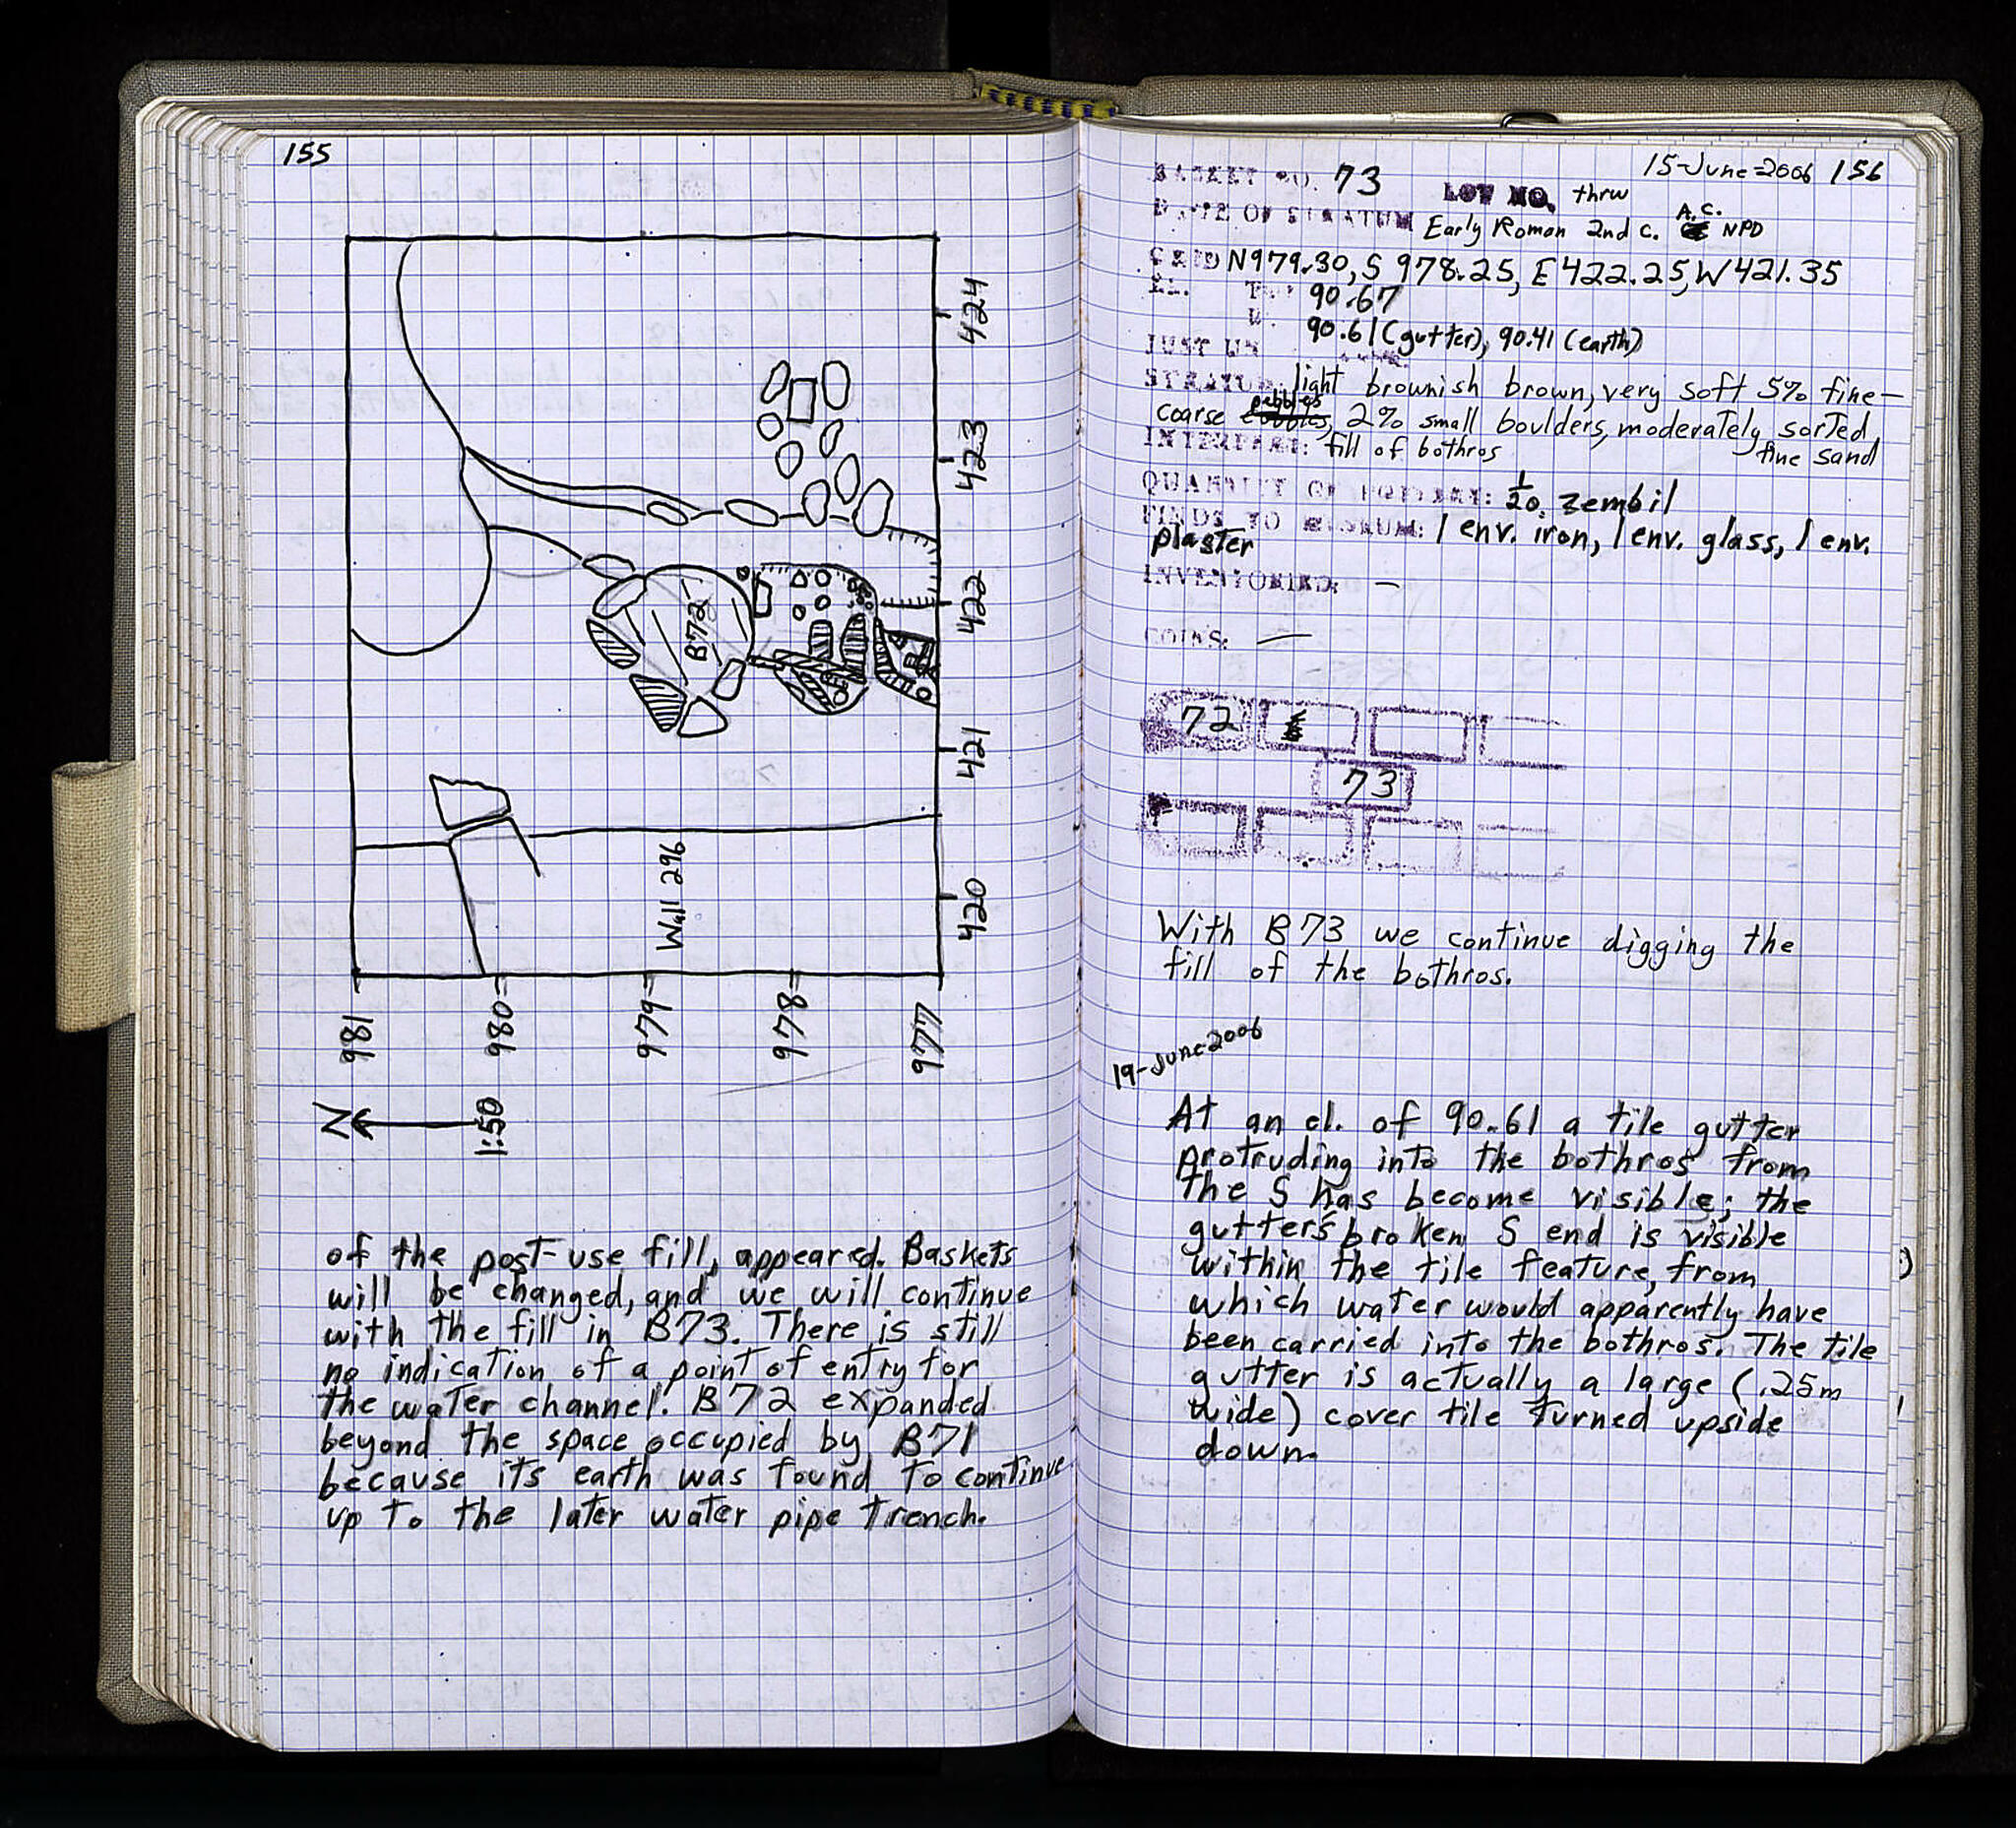 155
424
423
422
421
420
B72
Wall 296
981
980
979
978
977
N
1:50
of the post-use fill, appeared. Baskets
will be changed, and we will continue
with the fill in B73. There is still
no indication of a point of entry for
the water channel. B72 expanded
beyond the space occupied by B71
because its earth was found to continue
up to the later water pipe trench.
15-June-2006 156
BASKET NO. 73 LOT NO. thrw
DATE OF STRATUM Early Roman 2nd c. A.C. NPD
GRID N979.30, S 978.25, E 422.25, W 421.35
EL. 90.67
90.61 (gutter), 90.41 (earth)
JUST UN
STRATUM: light brownish brown, very soft 5% fine-
coarse pebbles, 2% small boulders, moderately sorted
fine sand
INTERPRET: fill of bothros
QUANTITY OF POTTERY: 1/20 zembil
FINDS TO MUSEUM: 1 env. iron, 1 env. glass, 1 env.
plaster
INVENTORIED: —
COINS: —
72
73
With B73 we continue digging the
fill of the bothros.
19-June-2006
At an el. of 90.61 a tile gutter
protruding into the bothros from
the S has become visible; the
gutter's broken S end is visible
within the tile feature, from
which water would apparently have
been carried into the bothros. The tile
gutter is actually a large (.25m
wide) cover tile turned upside
down.